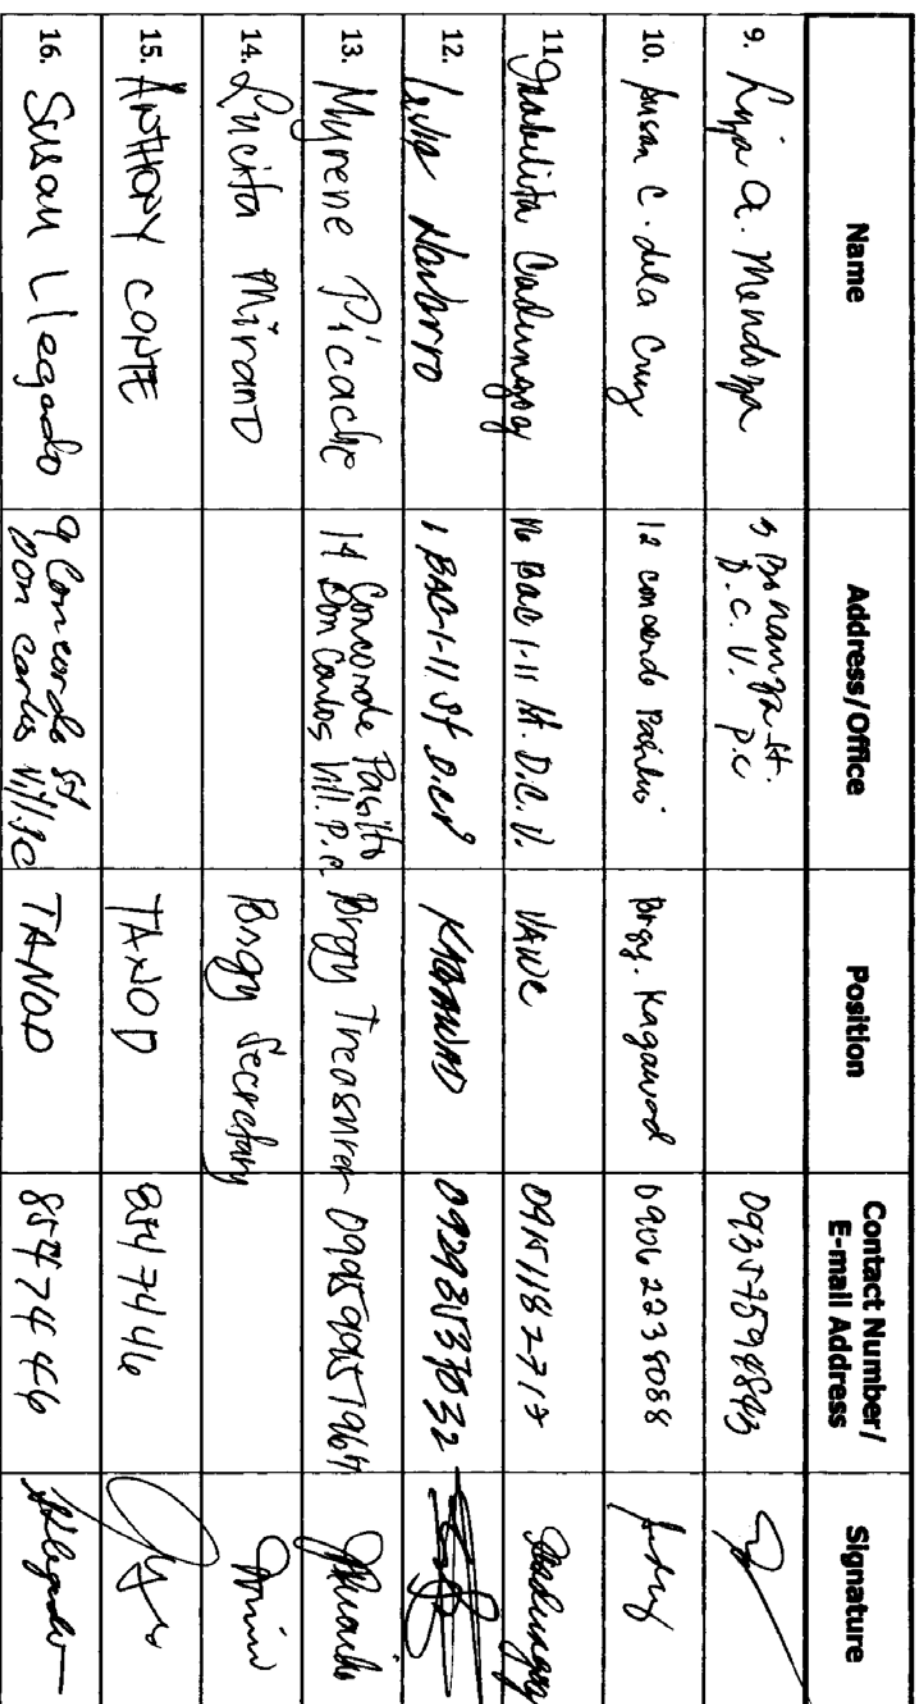 Name Address/Office Position Contact Number/ E-mail Address Signature
9. Ligia A. Mendoza 3 Bonanza St. D.C.V. P.C 09357598843
10. Susan C. dela Cruz 12 concorde Pasilio Brgy. Kagawad 09062238088
11. Isabelita Cadungog No BAC 1-11 St. D.C.V. VAWC 09151182717
12. Navarro 1 BAC-1-11 St D.C.V KAGAWAD
13. Myrene Picache 14 Concorde Pasilio Don Carlos Vill. P.C. Brgy Treasurer
14. Lucita Mirano Brgy Secretary
15. ANTHONY CONTE TANOD 8547446
16. Susan Llegado 9 Concorde St Don Carlos Vill. PC TANOD 8547446